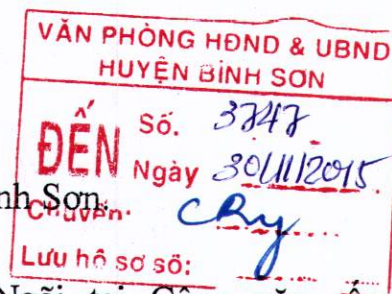 VĂN PHÒNG HĐND & UBND
HUYỆN BÌNH SƠN
ĐẾN
Số. 3747
Ngày 30/11/2015
nh Sơn.
Chuyển:
Lưu hồ sơ số: